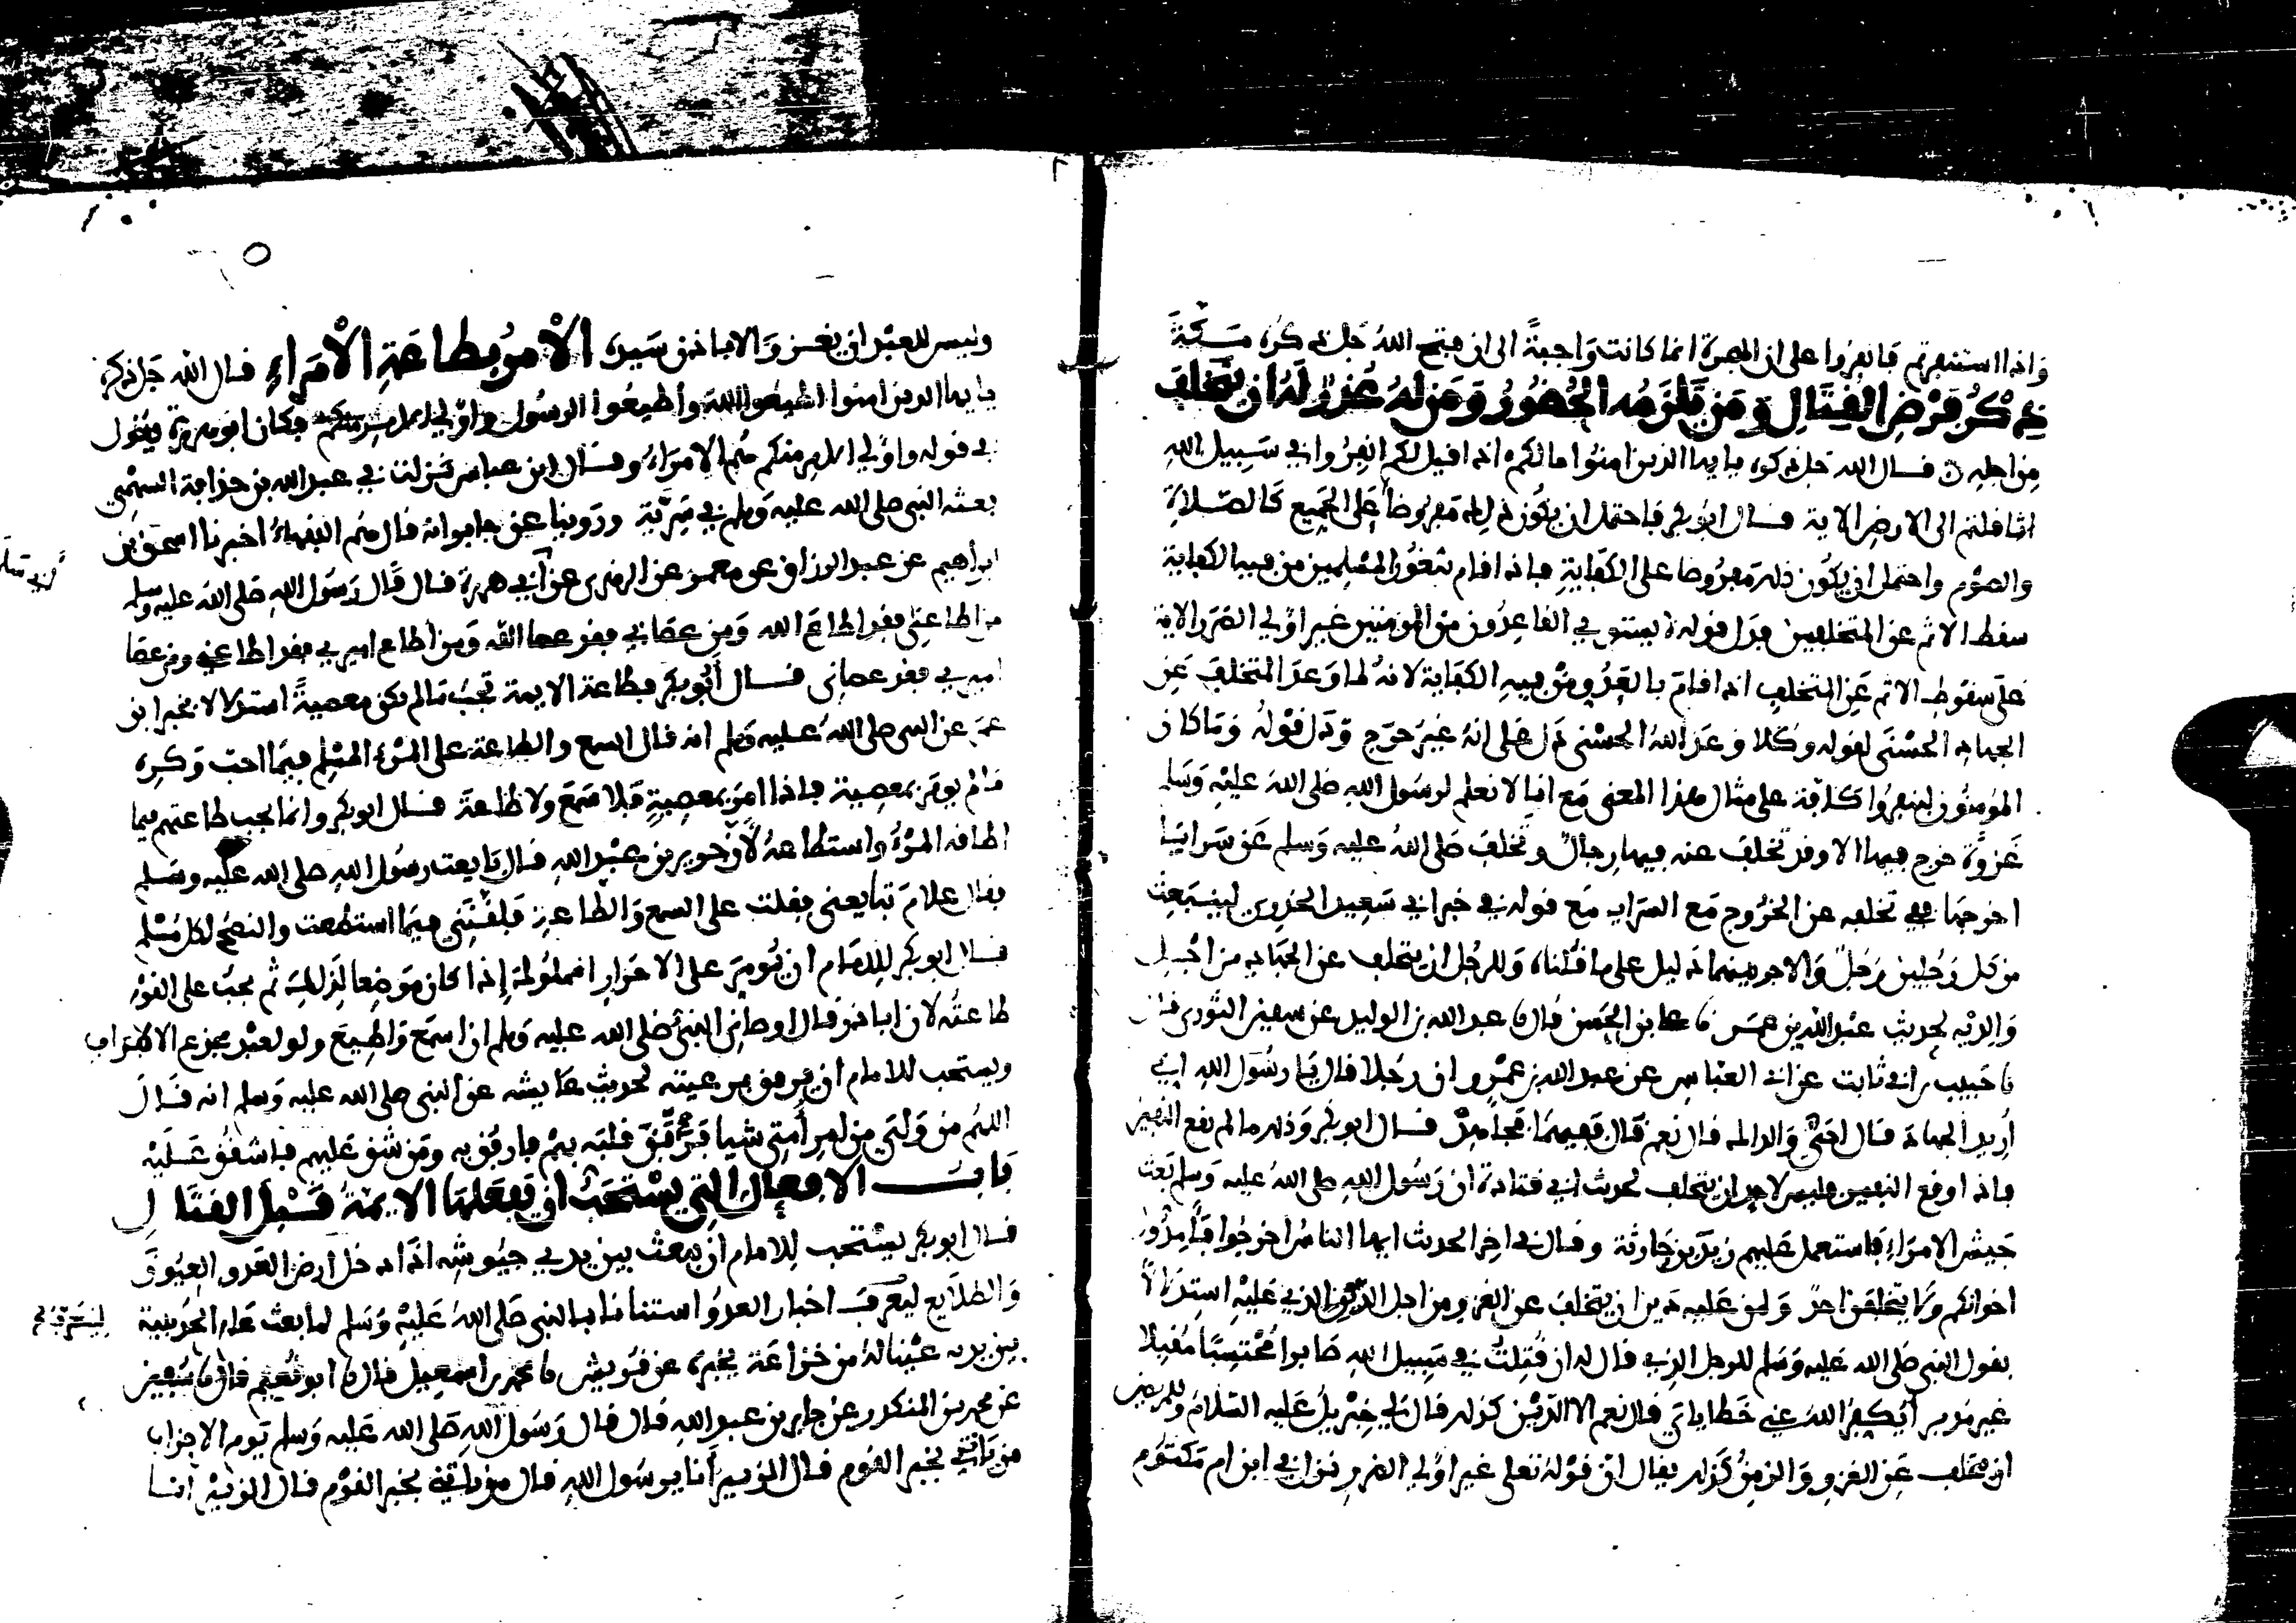 واذا استنفرتم فانفروا على ان الهجرة انما كانت واجبة الى ان فتح الله جل ذكره مكة
ذكر فرض القتال ومن يلزمه الحضور ومن له عذر له ان يتخلف
من اجله قال الله جل ذكره يا يها الذين امنوا ما لكم اذا قيل لكم انفروا في سبيل الله
اثاقلتم الى الارض الاية قال ابو بكر فاحتمل ان يكون ذلك مفروضا على الجميع كالصلاة
والصوم واحتمل ان يكون ذلك مفروضا على الكفاية فاذا اقام بثغور المسلمين من فيه الكفاية
سقط الاثم عن المتخلفين فدل قوله لا يستوي القاعدون من المومنين غير اولي الضرر الاية
على سقوط الاثم عن المتخلف اذا قام بالغزو من فيه الكفاية لانه لما وعد المتخلف عن
الجهاد الحسنى لقوله وكلا وعد الله الحسنى دل على انه غير حرج ودل قوله وما كان
المومنون لينفروا كافة على مثال هذا المعنى مع انا لا نعلم لرسول الله صلى الله عليه وسلم
غزوة خرج فيها الا وقد تخلف عنه فيها رجال وتخلف صلى الله عليه وسلم عن سرايا
اخرجها في تخلفه عن الخروج مع السرايا مع قوله في خبر ابي سعيد الخدري لينبعث
من كل رجلين رجل والاجر بينهما دليل على ما قلناه وللرجل ان يتخلف عن الجهاد من اجل
والديه لحديث عبد الله بن عمر نا علي بن الحسن قال نا عبد الله بن الوليد عن سفين الثوري قال
نا حبيب بن ابي ثابت عن ابي العباس عن عبد الله بن عمرو ان رجلا قال يا رسول الله اني
اريد الجهاد قال احي والداك قال نعم قال ففيهما فجاهد قال ابو بكر وذلك ما لم يقع النفير
فاذا وقع النفير فليس لاحد ان يتخلف لحديث ابي قتادة ان رسول الله صلى الله عليه وسلم بعث
جيش الامراء فاستعمل عليهم زيد بن حارثة وقال في اخر الحديث ايها الناس اخرجوا فامدوا
اخوانكم ولا يتخلفن احد ولمن عليه دين ان يتخلف عن الغزو من اجل الدين الذي عليه استدلالا
بقول النبي صلى الله عليه وسلم للرجل الذي قال له ان قتلت في سبيل الله صابرا محتسبا مقبلا
غير مدبر أيكفر الله عني خطاياي قال نعم الا الدين كذلك قال لي جبريل عليه السلام وللمريض
ان يتخلف عن الغزو والزمن كذلك يقال ان قوله تعلى غير اولي الضرر نزل في ابن ام مكتوم
وليس للعبد ان يغزو الا باذن سيده الامر بطاعة الامراء قال الله جل ذكره
يا يها الذين امنوا اطيعوا الله واطيعوا الرسول واولي الامر منكم فكان ابو هريرة يقول
في قوله واولي الامر منكم هم الامراء وقال ابن عباس نزلت في عبد الله بن حذافة السهمي
بعثه النبي صلى الله عليه وسلم في سرية وروينا عن جابر انه قال هم الفقهاء اخبرنا اسحق بن
ابراهيم عن عبد الرزاق عن معمر عن الزهري عن ابي هريرة قال قال رسول الله صلى الله عليه وسلم
من اطاعني فقد اطاع الله ومن عصاني فقد عصا الله ومن اطاع اميري فقد اطاعني ومن عصا
اميري فقد عصاني قال ابو بكر فطاعة الايمة تجب ما لم يكن معصية استدلالا بخبر ابن
عمر عن النبي صلى الله عليه وسلم انه قال السمع والطاعة على المرء المسلم فيما احب وكره
ما لم يومر بمعصية فاذا امر بمعصية فلا سمع ولا طاعة قال ابو بكر وانما يجب طاعتهم فيما
اطاقه المرء واستطاعه لان جرير بن عبد الله قال بايعت رسول الله صلى الله عليه وسلم
فقال علام تبايعني فقلت على السمع والطاعة فلقنني فيما استطعت والنصح لكل مسلم
قال ابو بكر للامام ان يومر على الاحرار المملوك اذا كان موضعا لذلك ثم يجب على القوم
طاعته لان ابا ذر قال اوصاني النبي صلى الله عليه وسلم ان اسمع واطيع ولو لعبد مجدع الاطراف
ويستحب للامام ان يرفق برعيته لحديث عايشه عن النبي صلى الله عليه وسلم انه قال
اللهم من ولي من امر امتي شيا فرفق بهم فارفق به ومن شق عليهم فاشقق عليه
باب الافعال التي يستحب ان يفعلها الايمة قبل القتال
قال ابو بكر يستحب للامام ان يبعث بين يدي جيوشه اذا دخل ارض العدو العيون
والطلايع ليعرف اخبار العدو استنانا بالنبي صلى الله عليه وسلم لما بعث عام الحديبية
بين يديه عينا له من خزاعة يخبره عن قريش نا محمد بن اسمعيل قال نا ابو نعيم قال نا سفين
عن محمد بن المنكدر عن جابر بن عبد الله قال قال رسول الله صلى الله عليه وسلم يوم الاحزاب
من ياتيني بخبر القوم قال الزبير أنا يرسول الله قال من ياتيني بخبر القوم قال الزبير انا